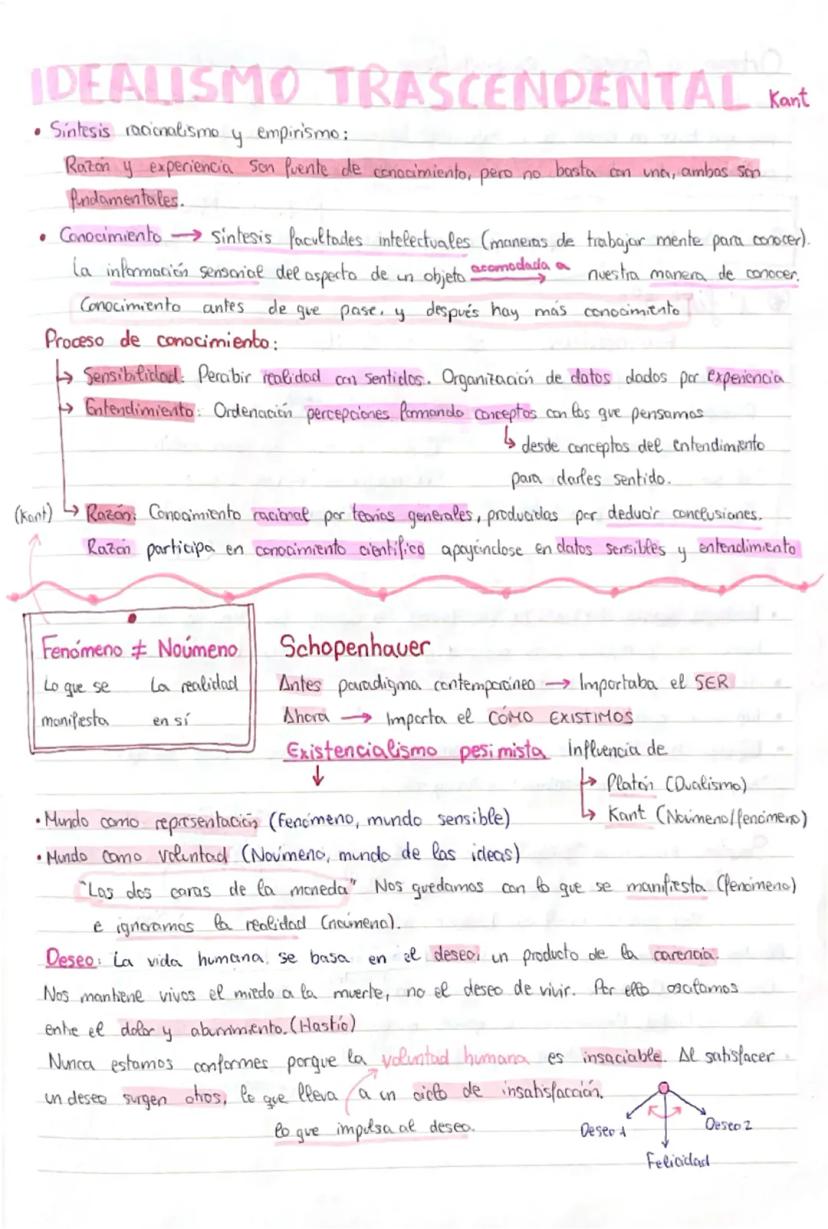 IDEALISMO TRASCENDENTAL Kant
• Síntesis racionalismo y empirismo:
Razón y experiencia son fuente de conocimiento, pero no basta con una, ambas son
fundamentales.
• Conocimiento → síntesis facultades intelectuales (maneras de trabajar mente para conocer).
La información sensorial del aspecto de un objeto acomodada a → nuestra manera de conocer.
Conocimiento antes de que pase, y después hay más conocimiento
Proceso de conocimiento:
↳ Sensibilidad: Percibir realidad con sentidos. Organización de datos dados por experiencia
↳ Entendimiento: Ordenación percepciones formando conceptos con los que pensamos
↳ desde conceptos del entendimiento
para darles sentido.
(Kant) ↳ Razón: Conocimiento racional por teorías generales, producidas por deducir conclusiones.
Razón participa en conocimiento científico apoyándose en datos sensibles y entendimiento
Fenómeno ≠ Noúmeno
Lo que se La realidad
manifiesta en sí
Schopenhauer
Antes paradigma contemporáneo → Importaba el SER
Ahora → Importa el CÓMO EXISTIMOS
Existencialismo pesimista Influencia de
↳ Platón (Dualismo)
↳ Kant (Noúmeno/fenómeno)
• Mundo como representación (Fenómeno, mundo sensible)
• Mundo como voluntad (Noúmeno, mundo de las ideas)
"Las dos caras de la moneda" Nos quedamos con lo que se manifiesta (fenómeno)
e ignoramos la realidad (noúmeno).
Deseo: La vida humana se basa en el deseo, un producto de la carencia.
Nos mantiene vivos el miedo a la muerte, no el deseo de vivir. Por ello oscilamos
entre el dolor y aburrimiento. (Hastío)
Nunca estamos conformes porque la voluntad humana es insaciable. Al satisfacer
un deseo surgen otros, lo que lleva a un ciclo de insatisfacción.
lo que impulsa al deseo.
Deseo 1 Deseo 2
Felicidad